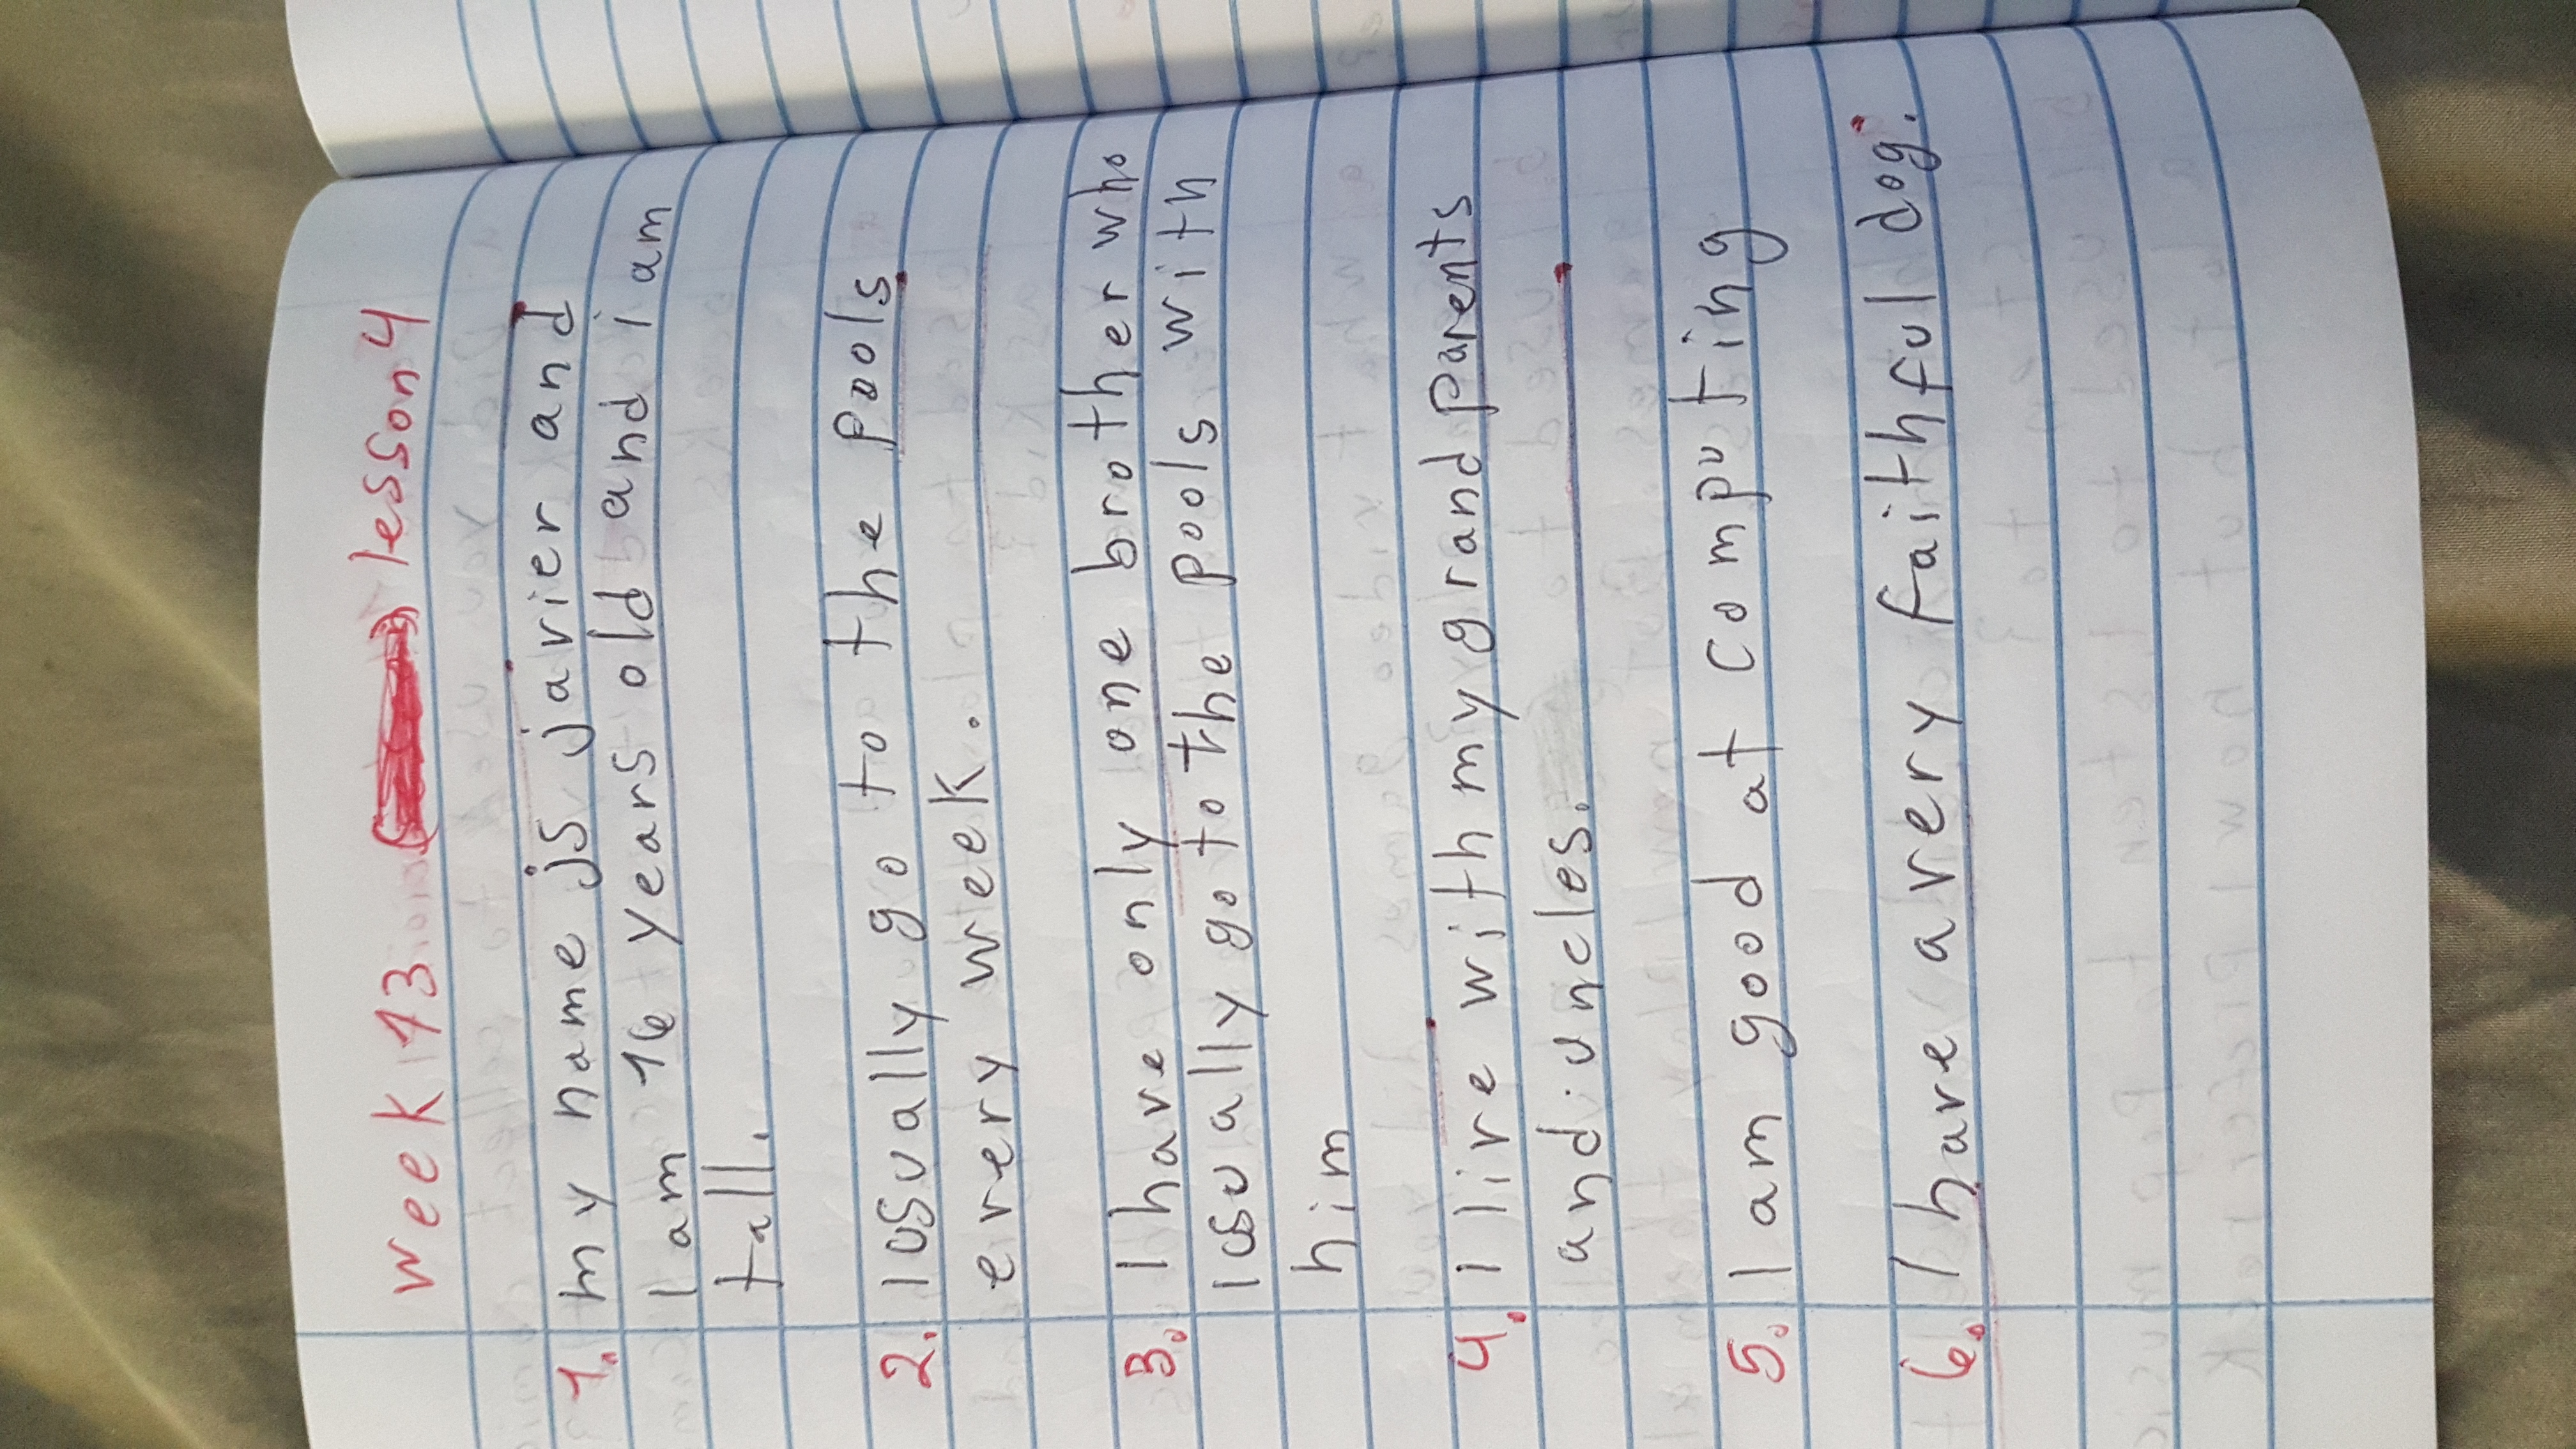 week 13 lesson 4
1. my name is javier and
I am 16 years old and i am
tall.
2. I usually go to the pools
every week.
3. I have only one brother who
I usually go to the pools with
him
4. I live with my grandparents
and uncles.
5. I am good at computing
6. I have a very faithful dog.